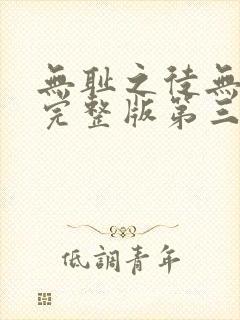 無耻之徒無
完整版第三
低調青年